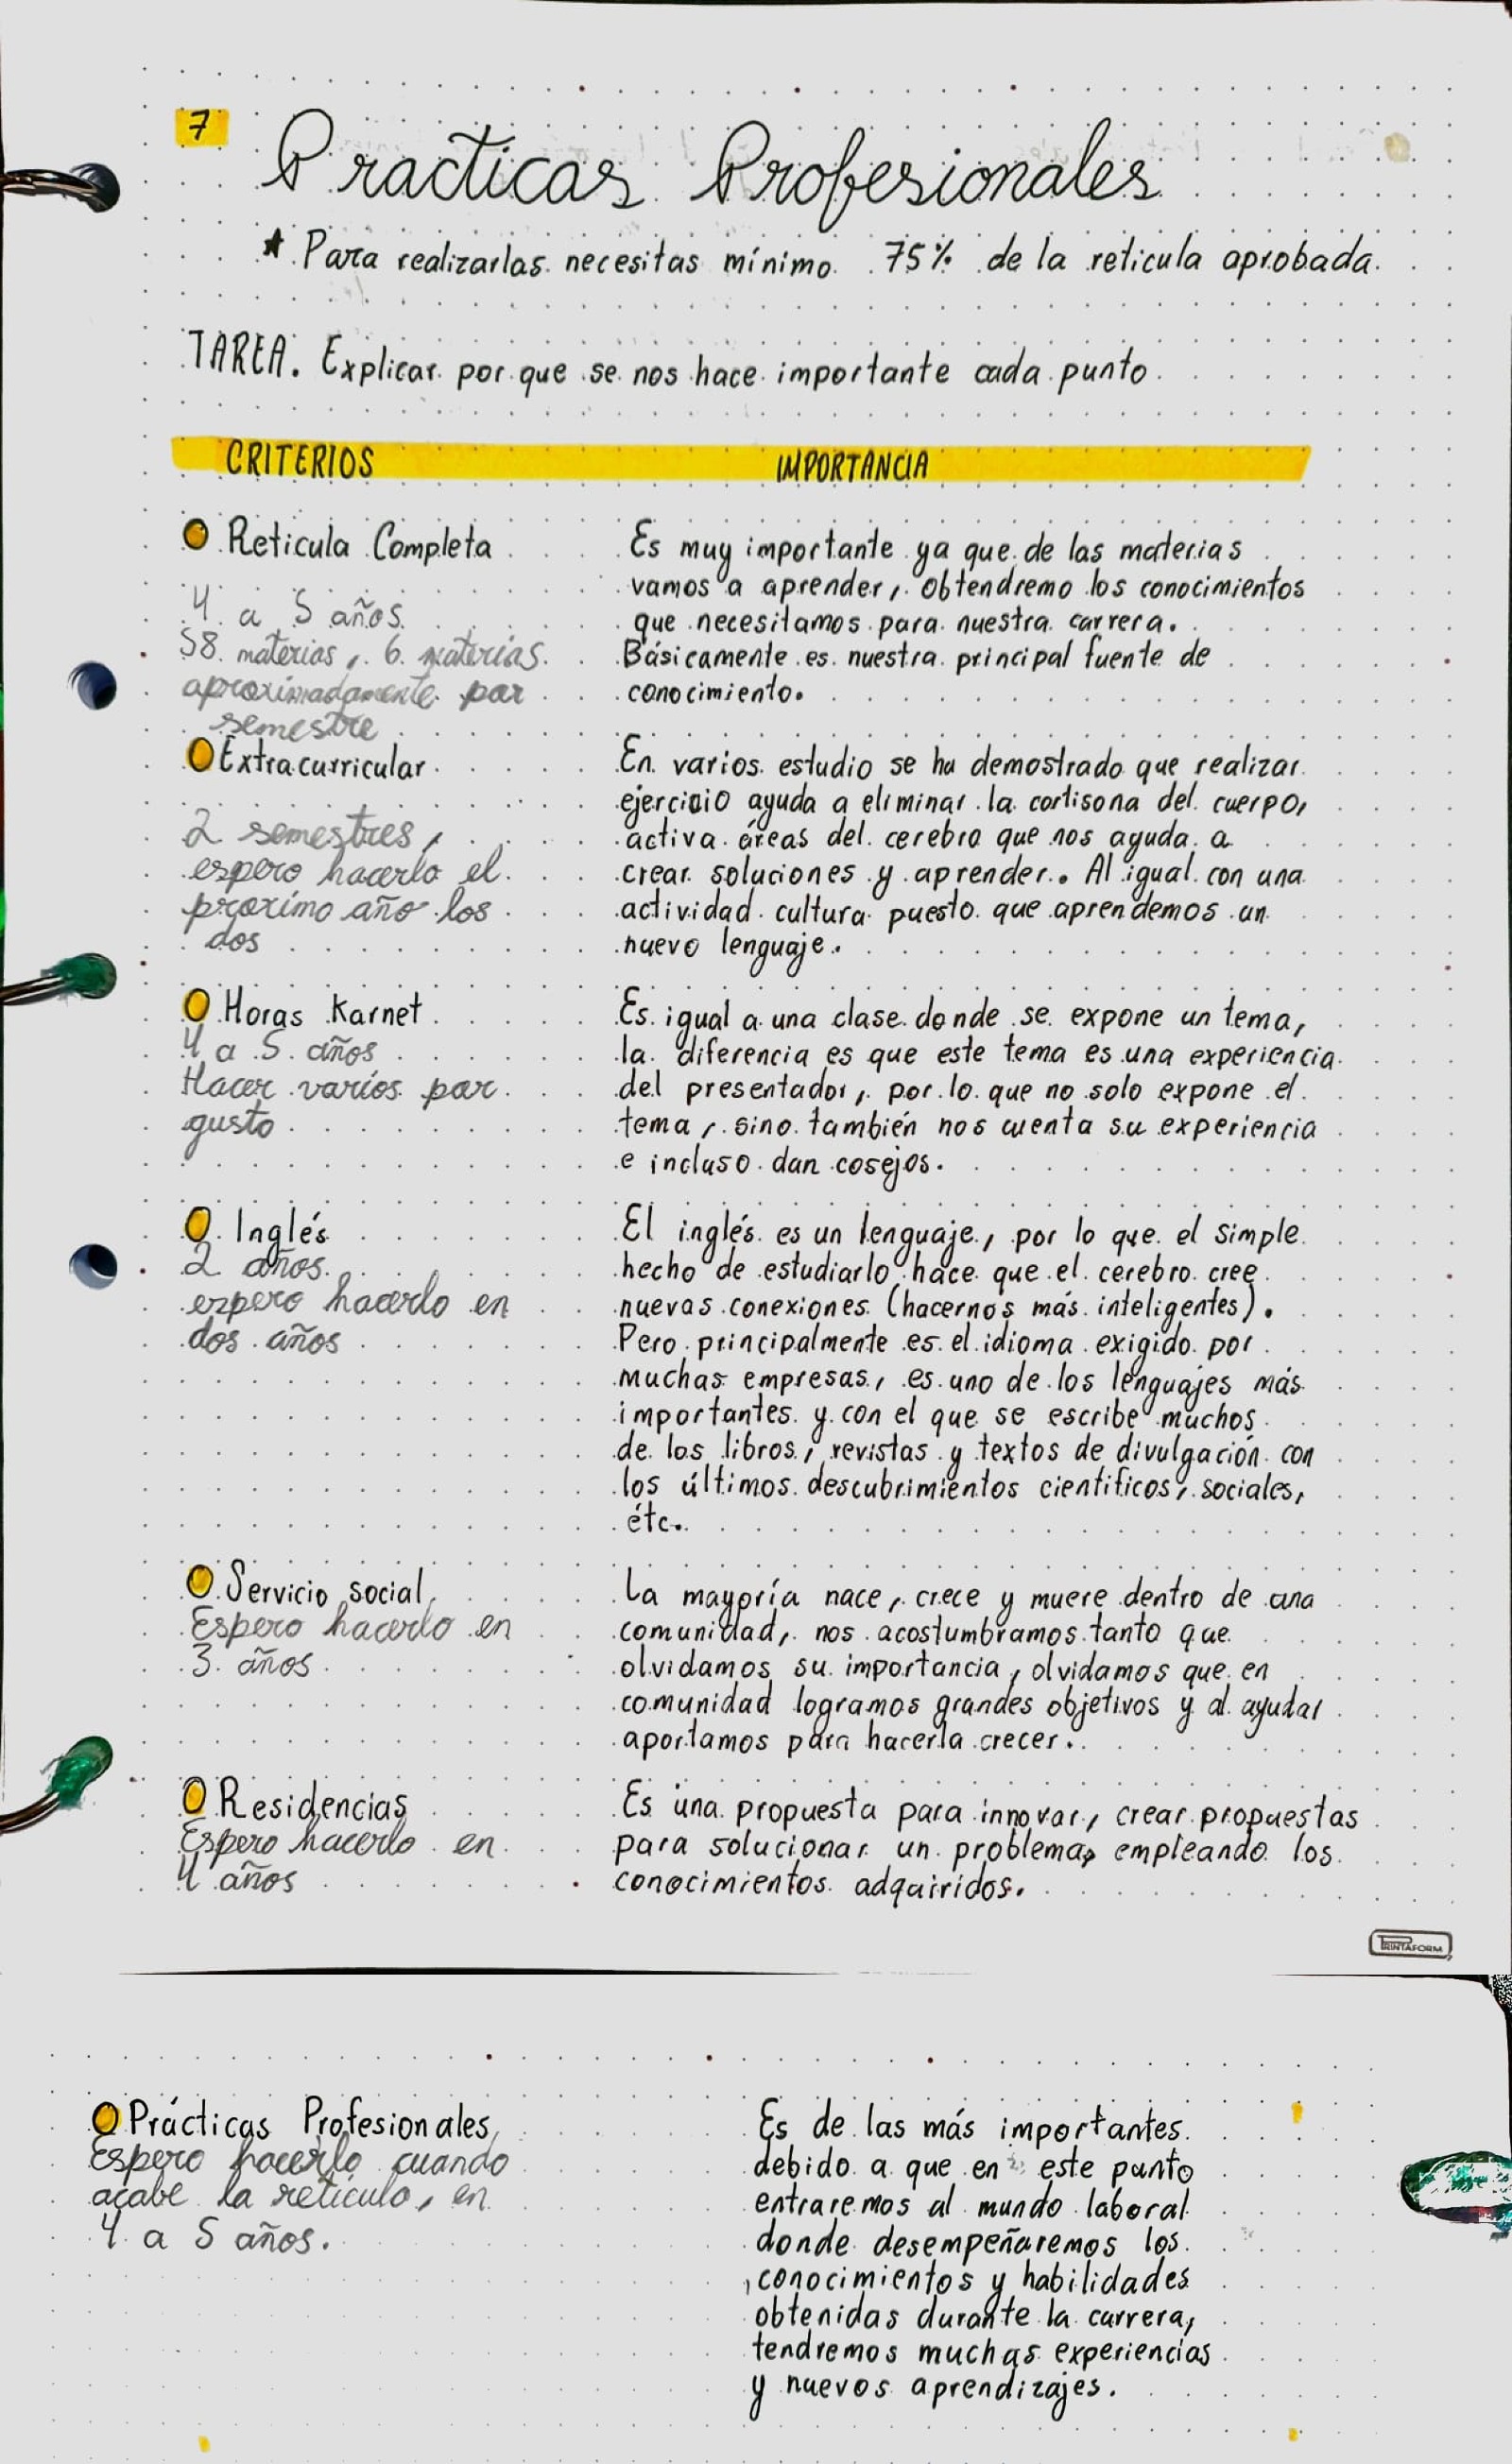 7
Practicas Profesionales
★ Para realizarlas necesitas mínimo 75% de la reticula aprobada.
TAREA. Explicar por que se nos hace importante cada punto
CRITERIOS IMPORTANCIA
Reticula Completa
4 a 5 años
58 materias, 6 materias
aproximadamente por
semestre
Es muy importante ya que de las materias
vamos a aprender, obtendremo los conocimientos
que necesitamos para nuestra carrera.
Básicamente es nuestra principal fuente de
conocimiento.
Extracurricular
2 semestres,
espero hacerlo el
proximo año los
dos
En varios estudio se ha demostrado que realizar
ejercicio ayuda a eliminar la cortisona del cuerpo,
activa áreas del cerebro que nos ayuda a
crear soluciones y aprender. Al igual con una
actividad cultura puesto que aprendemos un
nuevo lenguaje.
Horas Karnet
4 a 5 años
Hacer varios por
gusto
Es igual a una clase donde se expone un tema,
la diferencia es que este tema es una experiencia
del presentador, por lo que no solo expone el
tema, sino también nos cuenta su experiencia
e incluso dan cosejos.
Inglés
2 años
espero hacerlo en
dos años
El inglés es un lenguaje, por lo que el simple
hecho de estudiarlo hace que el cerebro cree
nuevas conexiones (hacernos más inteligentes).
Pero principalmente es el idioma exigido por
muchas empresas, es uno de los lenguajes más
importantes y con el que se escribe muchos
de los libros, revistas y textos de divulgación con
los últimos descubrimientos cientificos, sociales,
étc.
Servicio social
Espero hacerlo en
3 años
La mayoría nace, crece y muere dentro de una
comunidad, nos acostumbramos tanto que
olvidamos su importancia, olvidamos que en
comunidad logramos grandes objetivos y al ayudar
aportamos para hacerla crecer.
Residencias
Espero hacerlo en
4 años
Es una propuesta para innovar, crear propuestas
para solucionar un problema, empleando los
conocimientos adquiridos.
PRINTAFORM
Prácticas Profesionales
Espero hacerlo cuando
acabe la retículo, en
4 a 5 años.
Es de las más importantes
debido a que en este punto
entraremos al mundo laboral
donde desempeñaremos los
conocimientos y habilidades
obtenidas durante la carrera,
tendremos muchas experiencias
y nuevos aprendizajes.